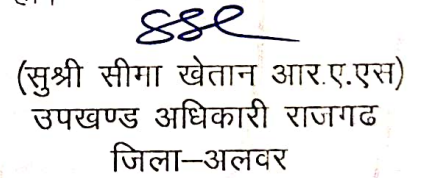 (सुश्री सीगा खेतान आर.ए.एस)
उपखण्ड अधिकारी राजगढ
जिला–अलवर